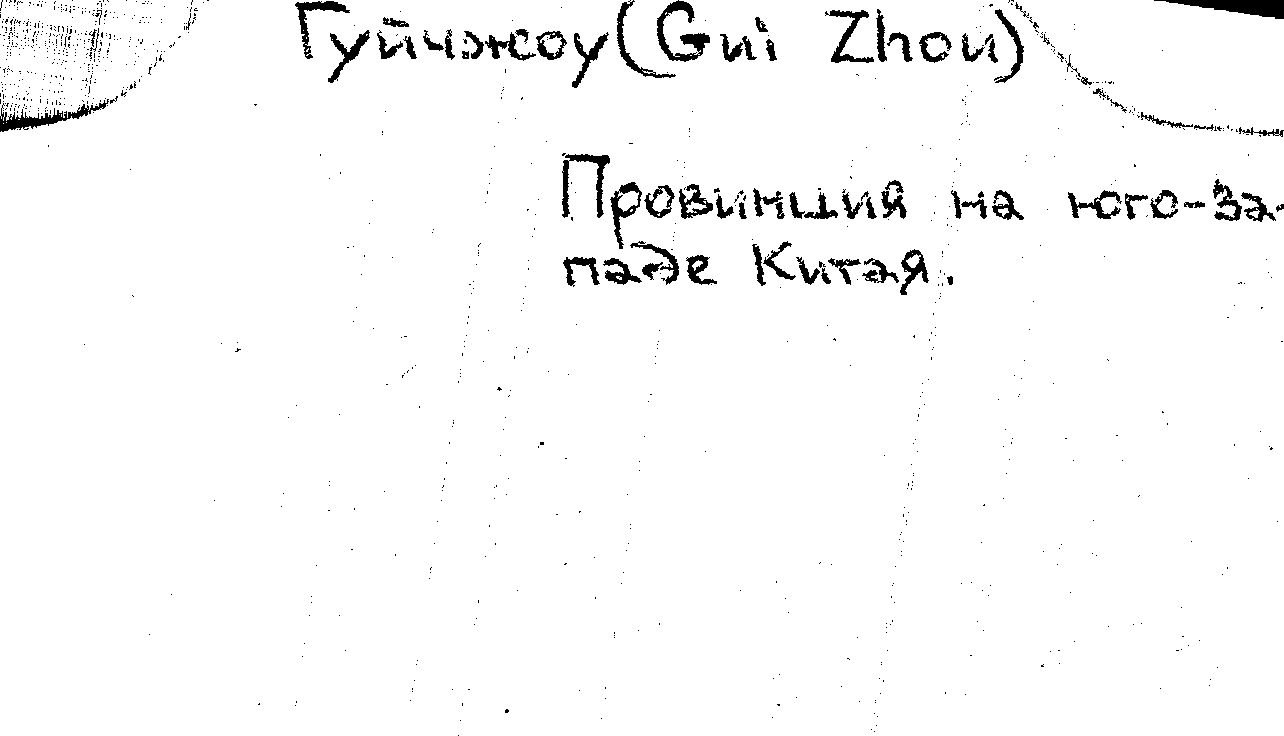 Гуйчжоу(Gui Zhou)
Провинция на юго-за-
паде Китая.